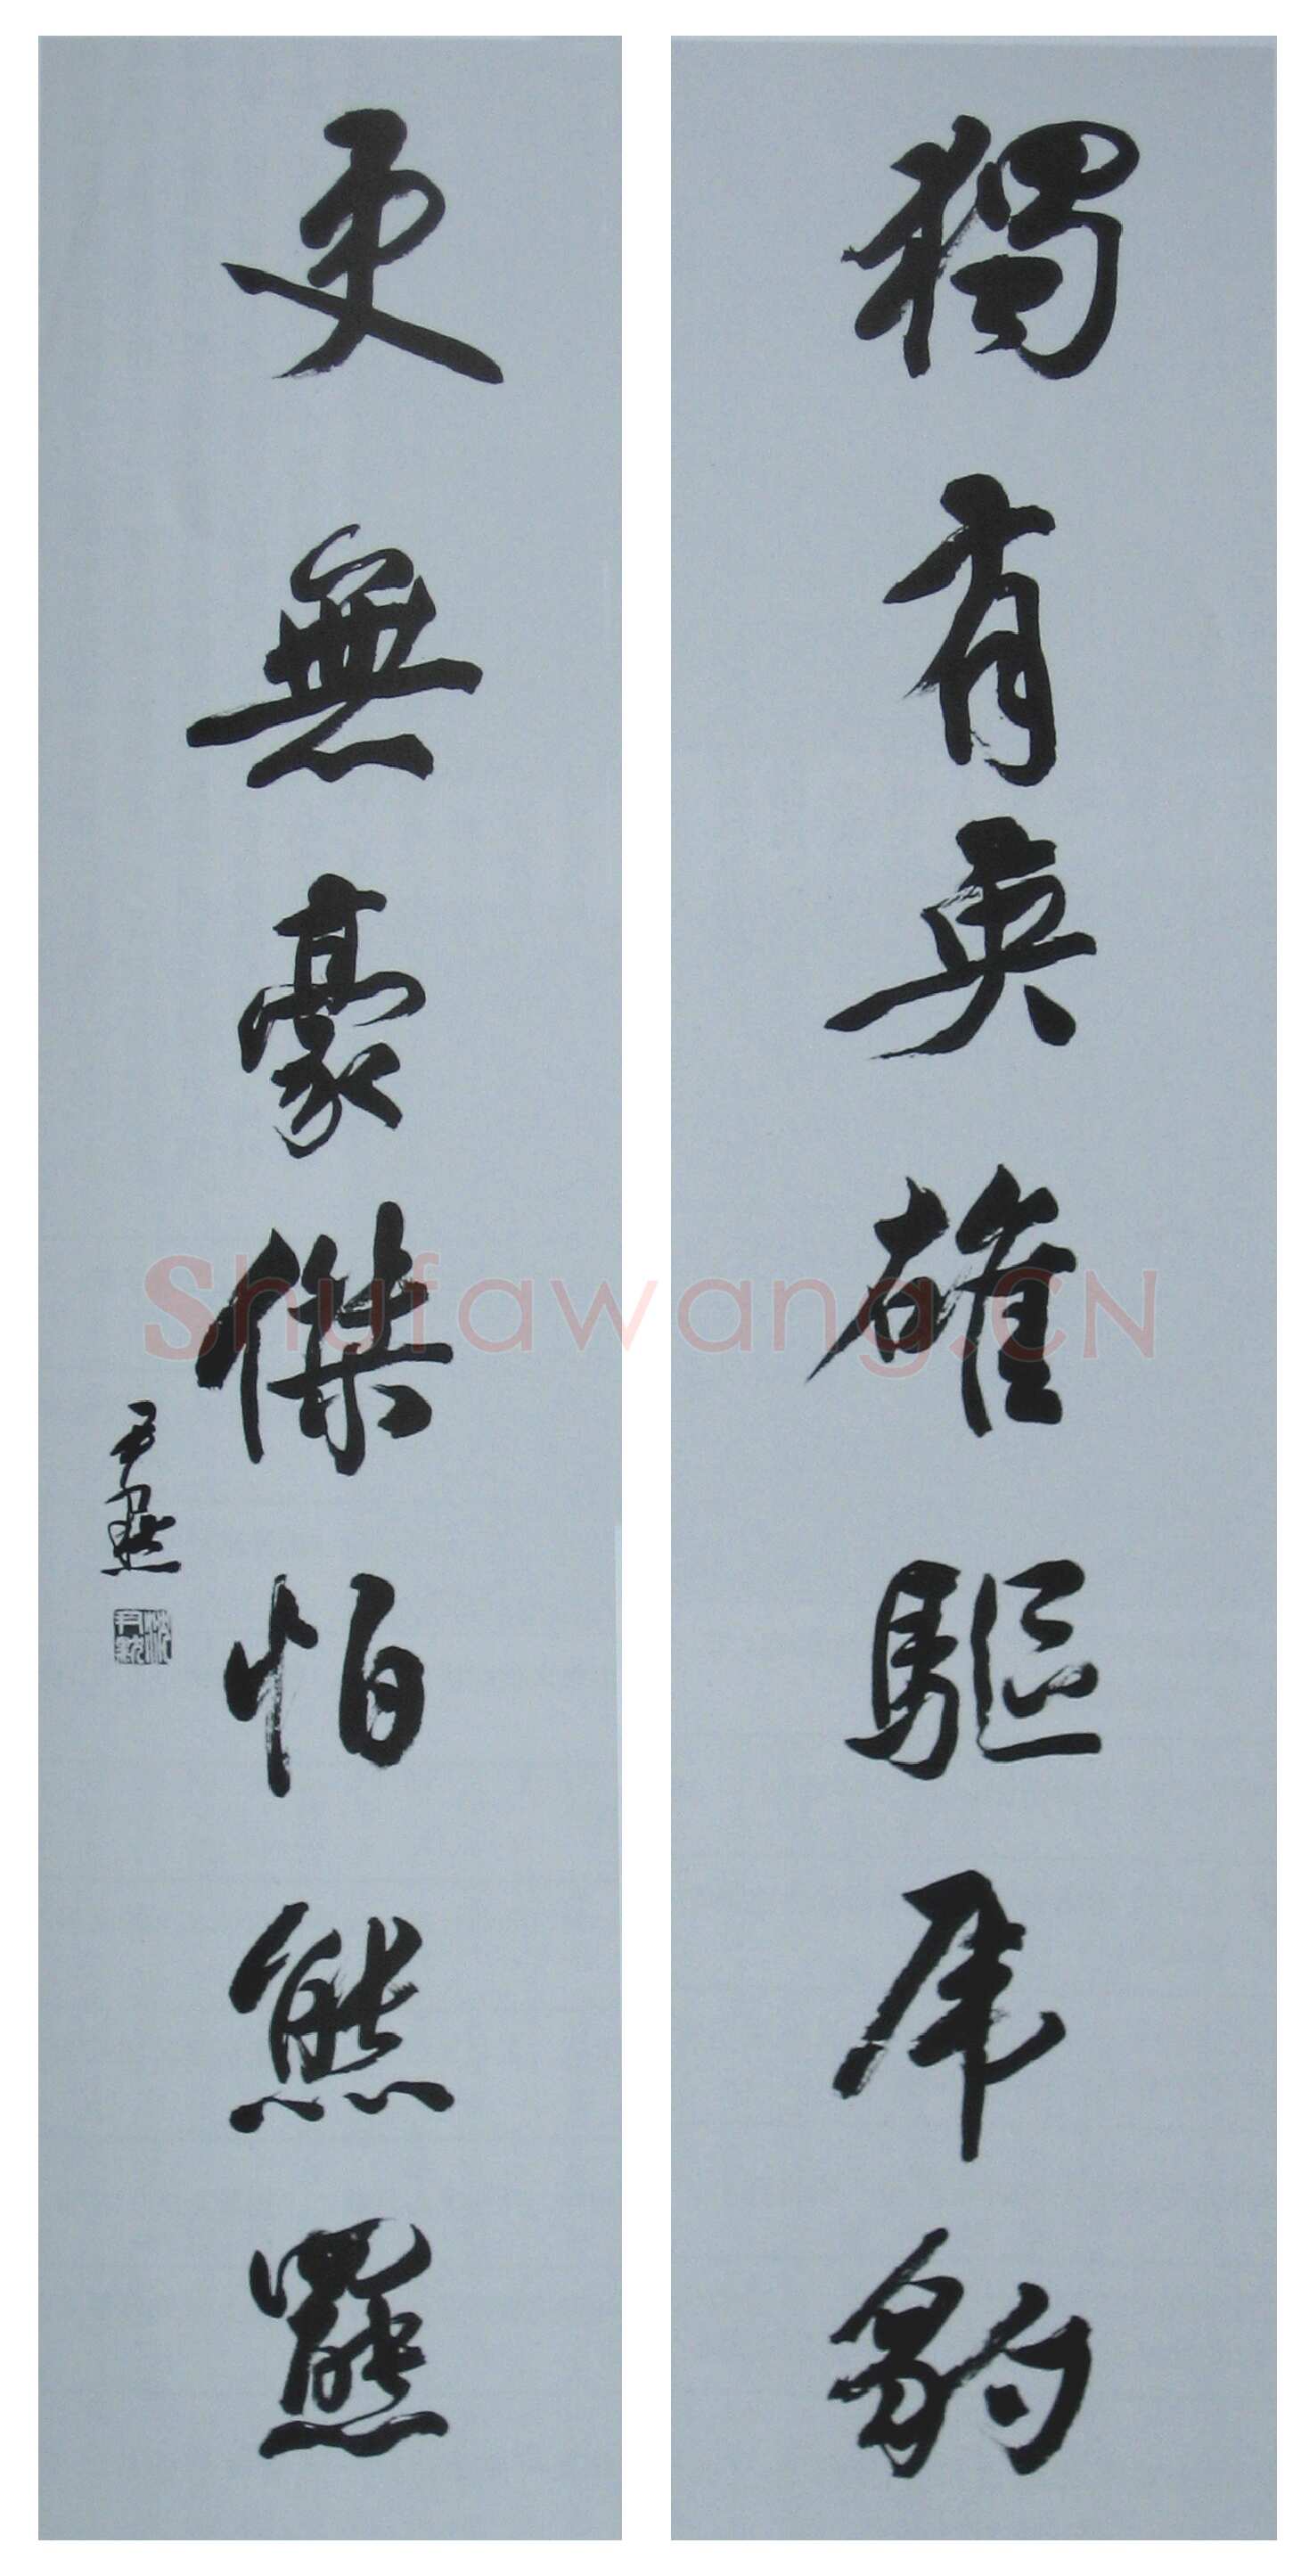 獨有英雄驅虎豹
更無豪傑怕熊羆
尹默
沈尹默
Shufawang.CN